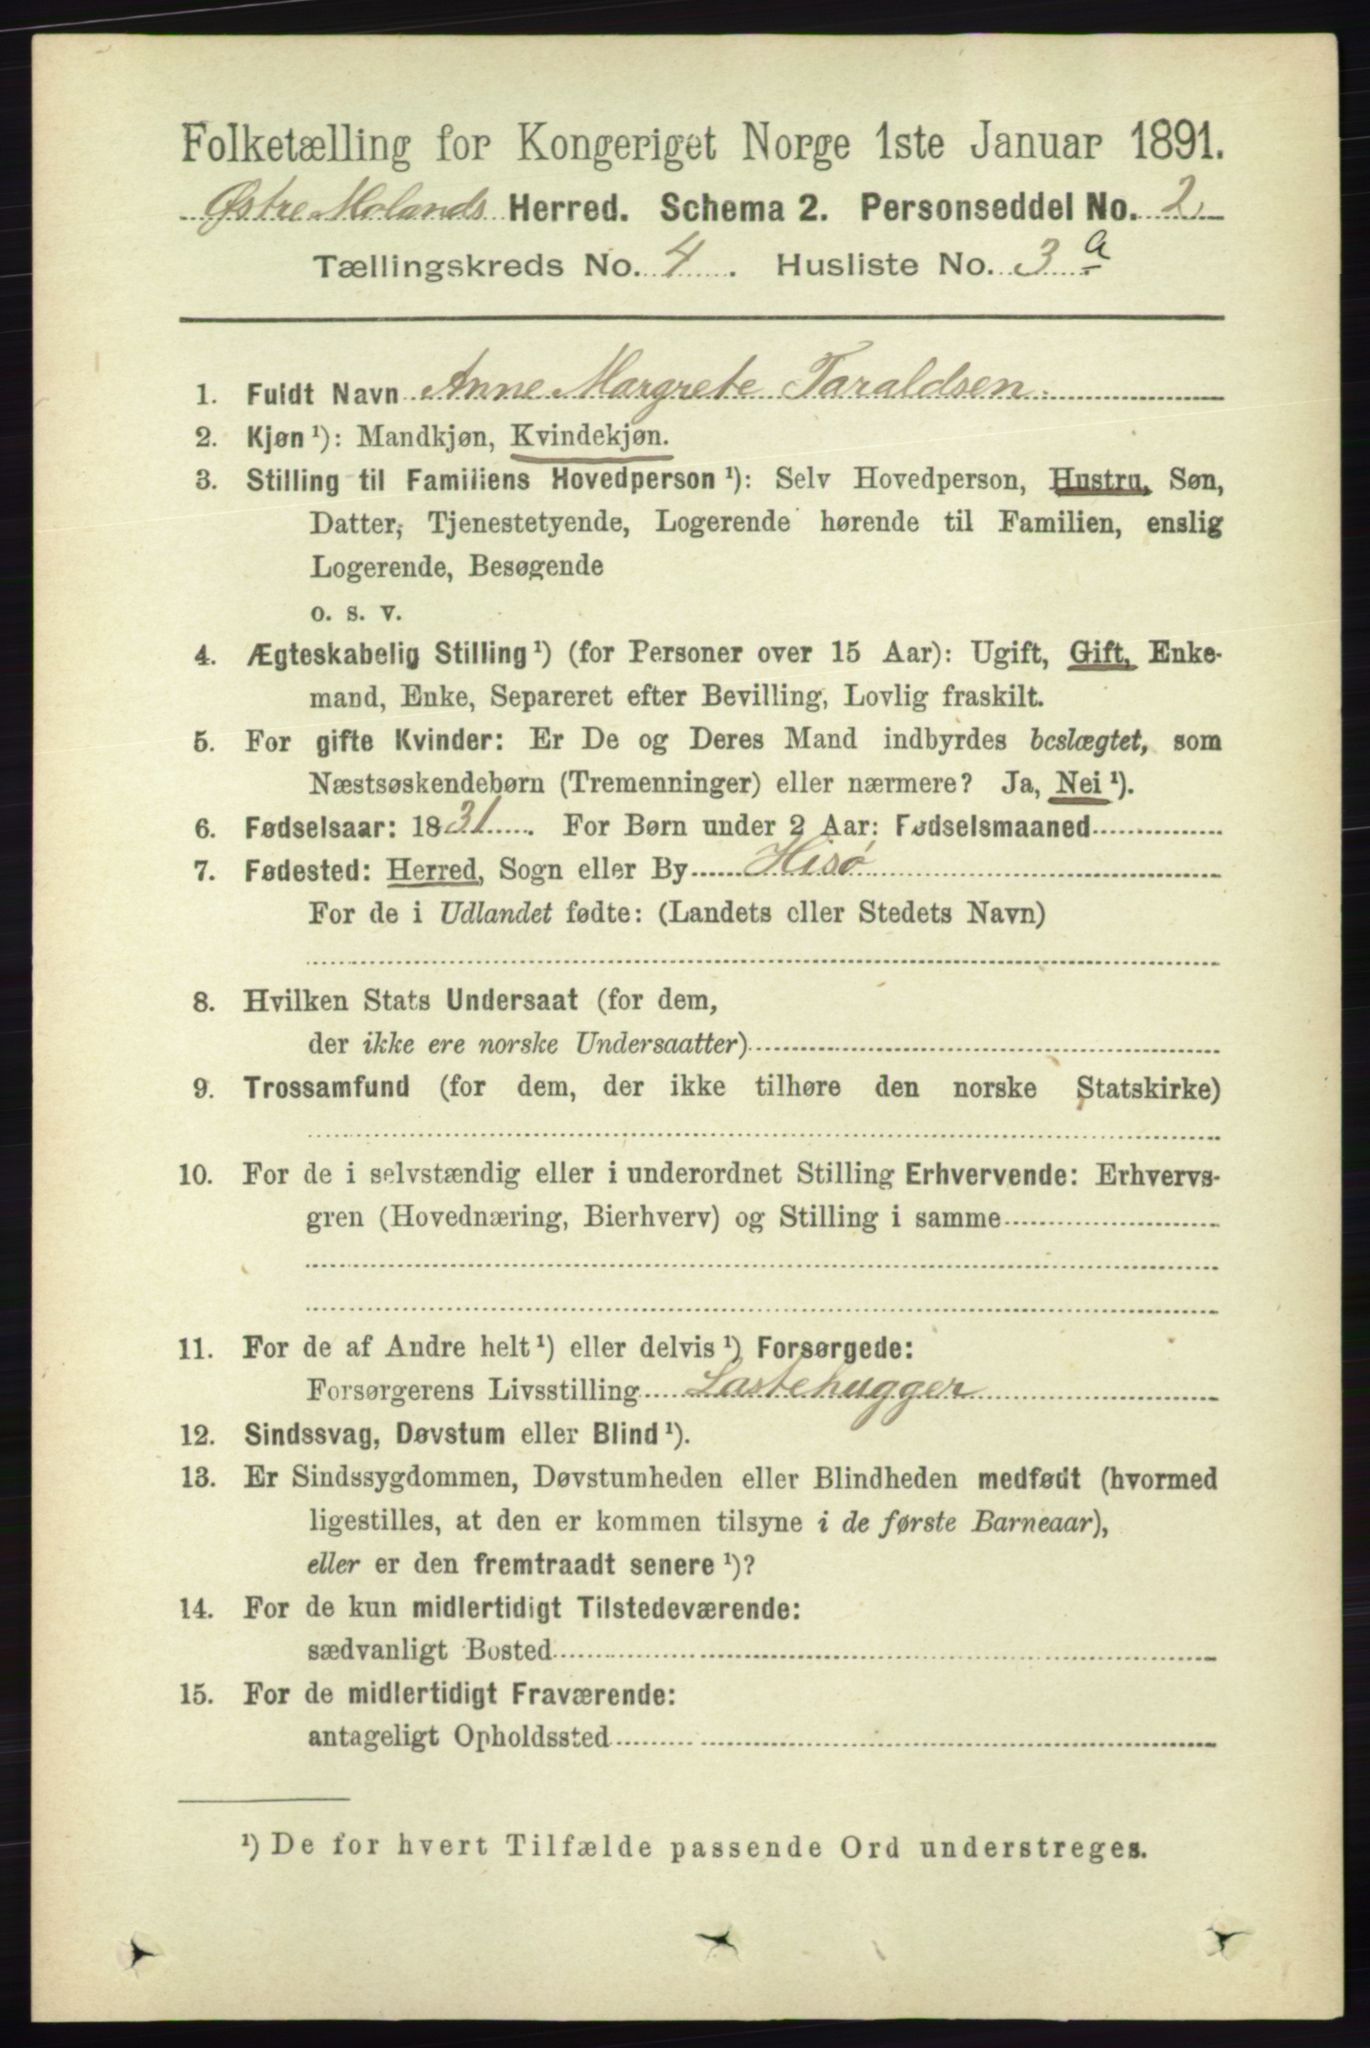 Folketælling for Kongeriget Norge 1ste Januar 1891.
Østre Molands Herred. Schema 2. Personseddel No. 2
Tællingskreds No. 4. Husliste No. 3 a
1. Fuldt Navn Anne Margrete Taraldsen.
2. Kjøn¹): Mandkjøn, Kvindekjøn.
3. Stilling til Familiens Hovedperson¹): Selv Hovedperson, Hustru, Søn,
Datter, Tjenestetyende, Logerende hørende til Familien, enslig
Logerende, Besøgende
o. s. v.
4. Ægteskabelig Stilling¹) (for Personer over 15 Aar): Ugift, Gift, Enke-
mand, Enke, Separeret efter Bevilling, Lovlig fraskilt.
5. For gifte Kvinder: Er De og Deres Mand indbyrdes beslægtet, som
Næstsøskendebørn (Tremenninger) eller nærmere? Ja, Nei¹).
6. Fødselsaar: 1831. For Børn under 2 Aar: Fødselsmaaned
7. Fødested: Herred, Sogn eller By Hisø
For de i Udlandet fødte: (Landets eller Stedets Navn)
8. Hvilken Stats Undersaat (for dem,
der ikke ere norske Undersaatter)
9. Trossamfund (for dem, der ikke tilhøre den norske Statskirke)
10. For de i selvstændig eller i underordnet Stilling Erhvervende: Erhvervs-
gren (Hovednæring, Bierhverv) og Stilling i samme
11. For de af Andre helt¹) eller delvis¹) Forsørgede:
Forsørgerens Livsstilling Lastehugger
12. Sindssvag, Døvstum eller Blind¹).
13. Er Sindssygdommen, Døvstumheden eller Blindheden medfødt (hvormed
ligestilles, at den er kommen tilsyne i de første Barneaar),
eller er den fremtraadt senere¹)?
14. For de kun midlertidigt Tilstedeværende:
sædvanligt Bosted
15. For de midlertidigt Fraværende:
antageligt Opholdssted
¹) De for hvert Tilfælde passende Ord understreges.